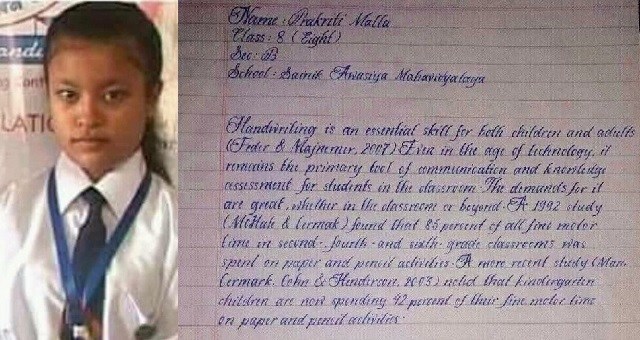 Name : Prakriti Malla
Class : 8 (Eight)
Sec : B
School : Sainik Awasiya Mahavidyalaya
Handwriting is an essential skill for both children and adults
(Feder & Majnemer, 2007) Even in the age of technology, it
remains the primary tool of communication and knowledge
assessment for students in the classroom. The dimands for it
are great, whether in the classroom or beyond. A 1992 study
(McHale & Cermak) found that 85 percent of all fine motor
time in second- fourth- and sixth- grade classrooms was
spent on paper and pencil activities. A more recent study (Marr,
Cermark, Cohn & Henderson, 2003) noted that kindergarten
children are now spending 42 percent of their fine motor time
on paper and pencil activities.